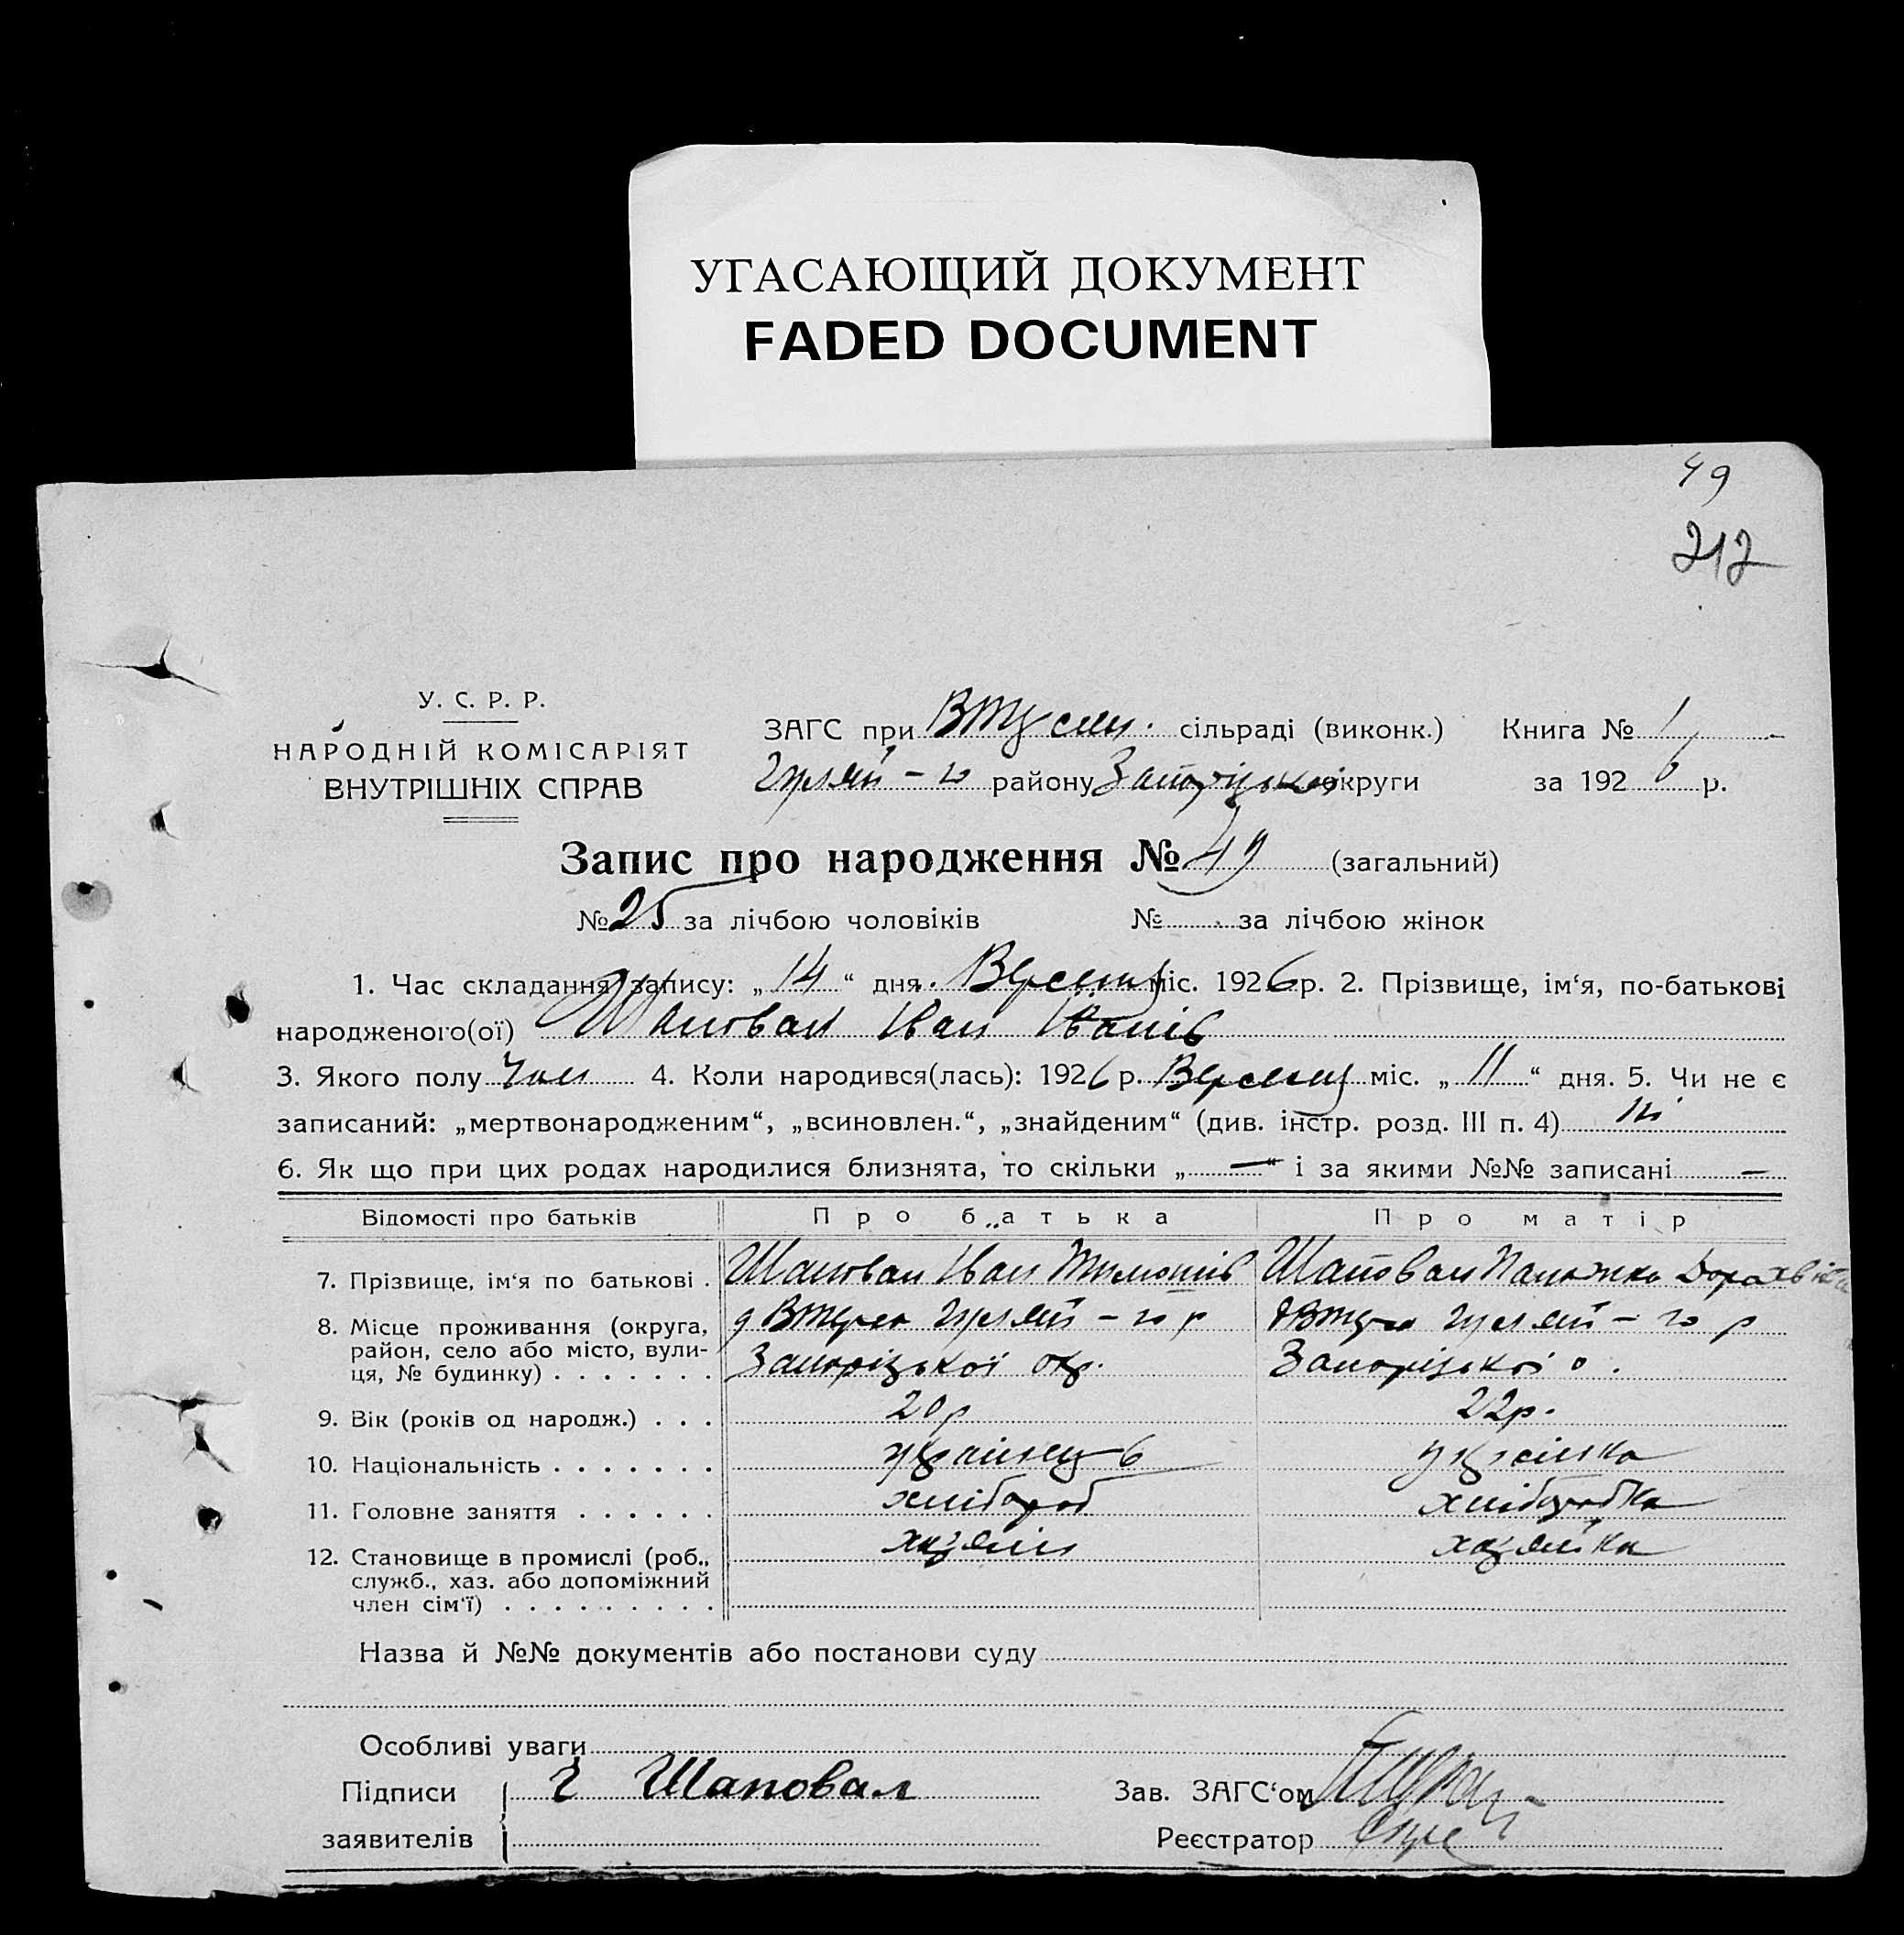 УГАСАЮЩИЙ ДОКУМЕНТ
FADED DOCUMENT
49
212
У. С. Р. Р.
НАРОДНІЙ КОМІСАРІЯТ
ВНУТРІШНІХ СПРАВ
ЗАГС при сільраді (виконк.) Книга № 1
Гуляй - го району Запорізької округи за 1926 р.
Запис про народження № 49 (загальний)
№ 25 за лічбою чоловіків № за лічбою жінок
1. Час складання запису: „ 14 “ дня Вересня міс. 1926 р. 2. Прізвище, ім‘я, по-батькові
народженого(ої) Шаповал Іван Іванів
3. Якого полу Чол 4. Коли народився(лась): 1926 р. Вересня міс. „ 11 “ дня. 5. Чи не є
записаний: „мертвонародженим“, „всиновлен.“, „знайденим“ (див. інстр. розд. III п. 4) ні
6. Як що при цих родах народилися близнята, то скільки „ — “ і за якими №№ записані —
Відомості про батьків Про батька Про матір
7. Прізвище, ім‘я по батькові . Шаповал Іван Тимошів Шаповал
8. Місце проживання (округа, Гуляй - го р Гуляй - го р
район, село або місто, вули- Запорізької окр. Запорізької о.
ця, № будинку) . . . . . . .
9. Вік (років од народж.) . . . 20 р 22 р.
10. Національність . . . . . . . українець українка
11. Головне заняття . . . . . . хлібороб хліборобка
12. Становище в промислі (роб., хазяїн хазяйка
служб., хаз. або допоміжний
член сім‘ї) . . . . . . . . .
Назва й №№ документів або постанови суду
Особливі уваги
Підписи Шаповал Зав. ЗАГС‘ом
заявителів Реєстратор